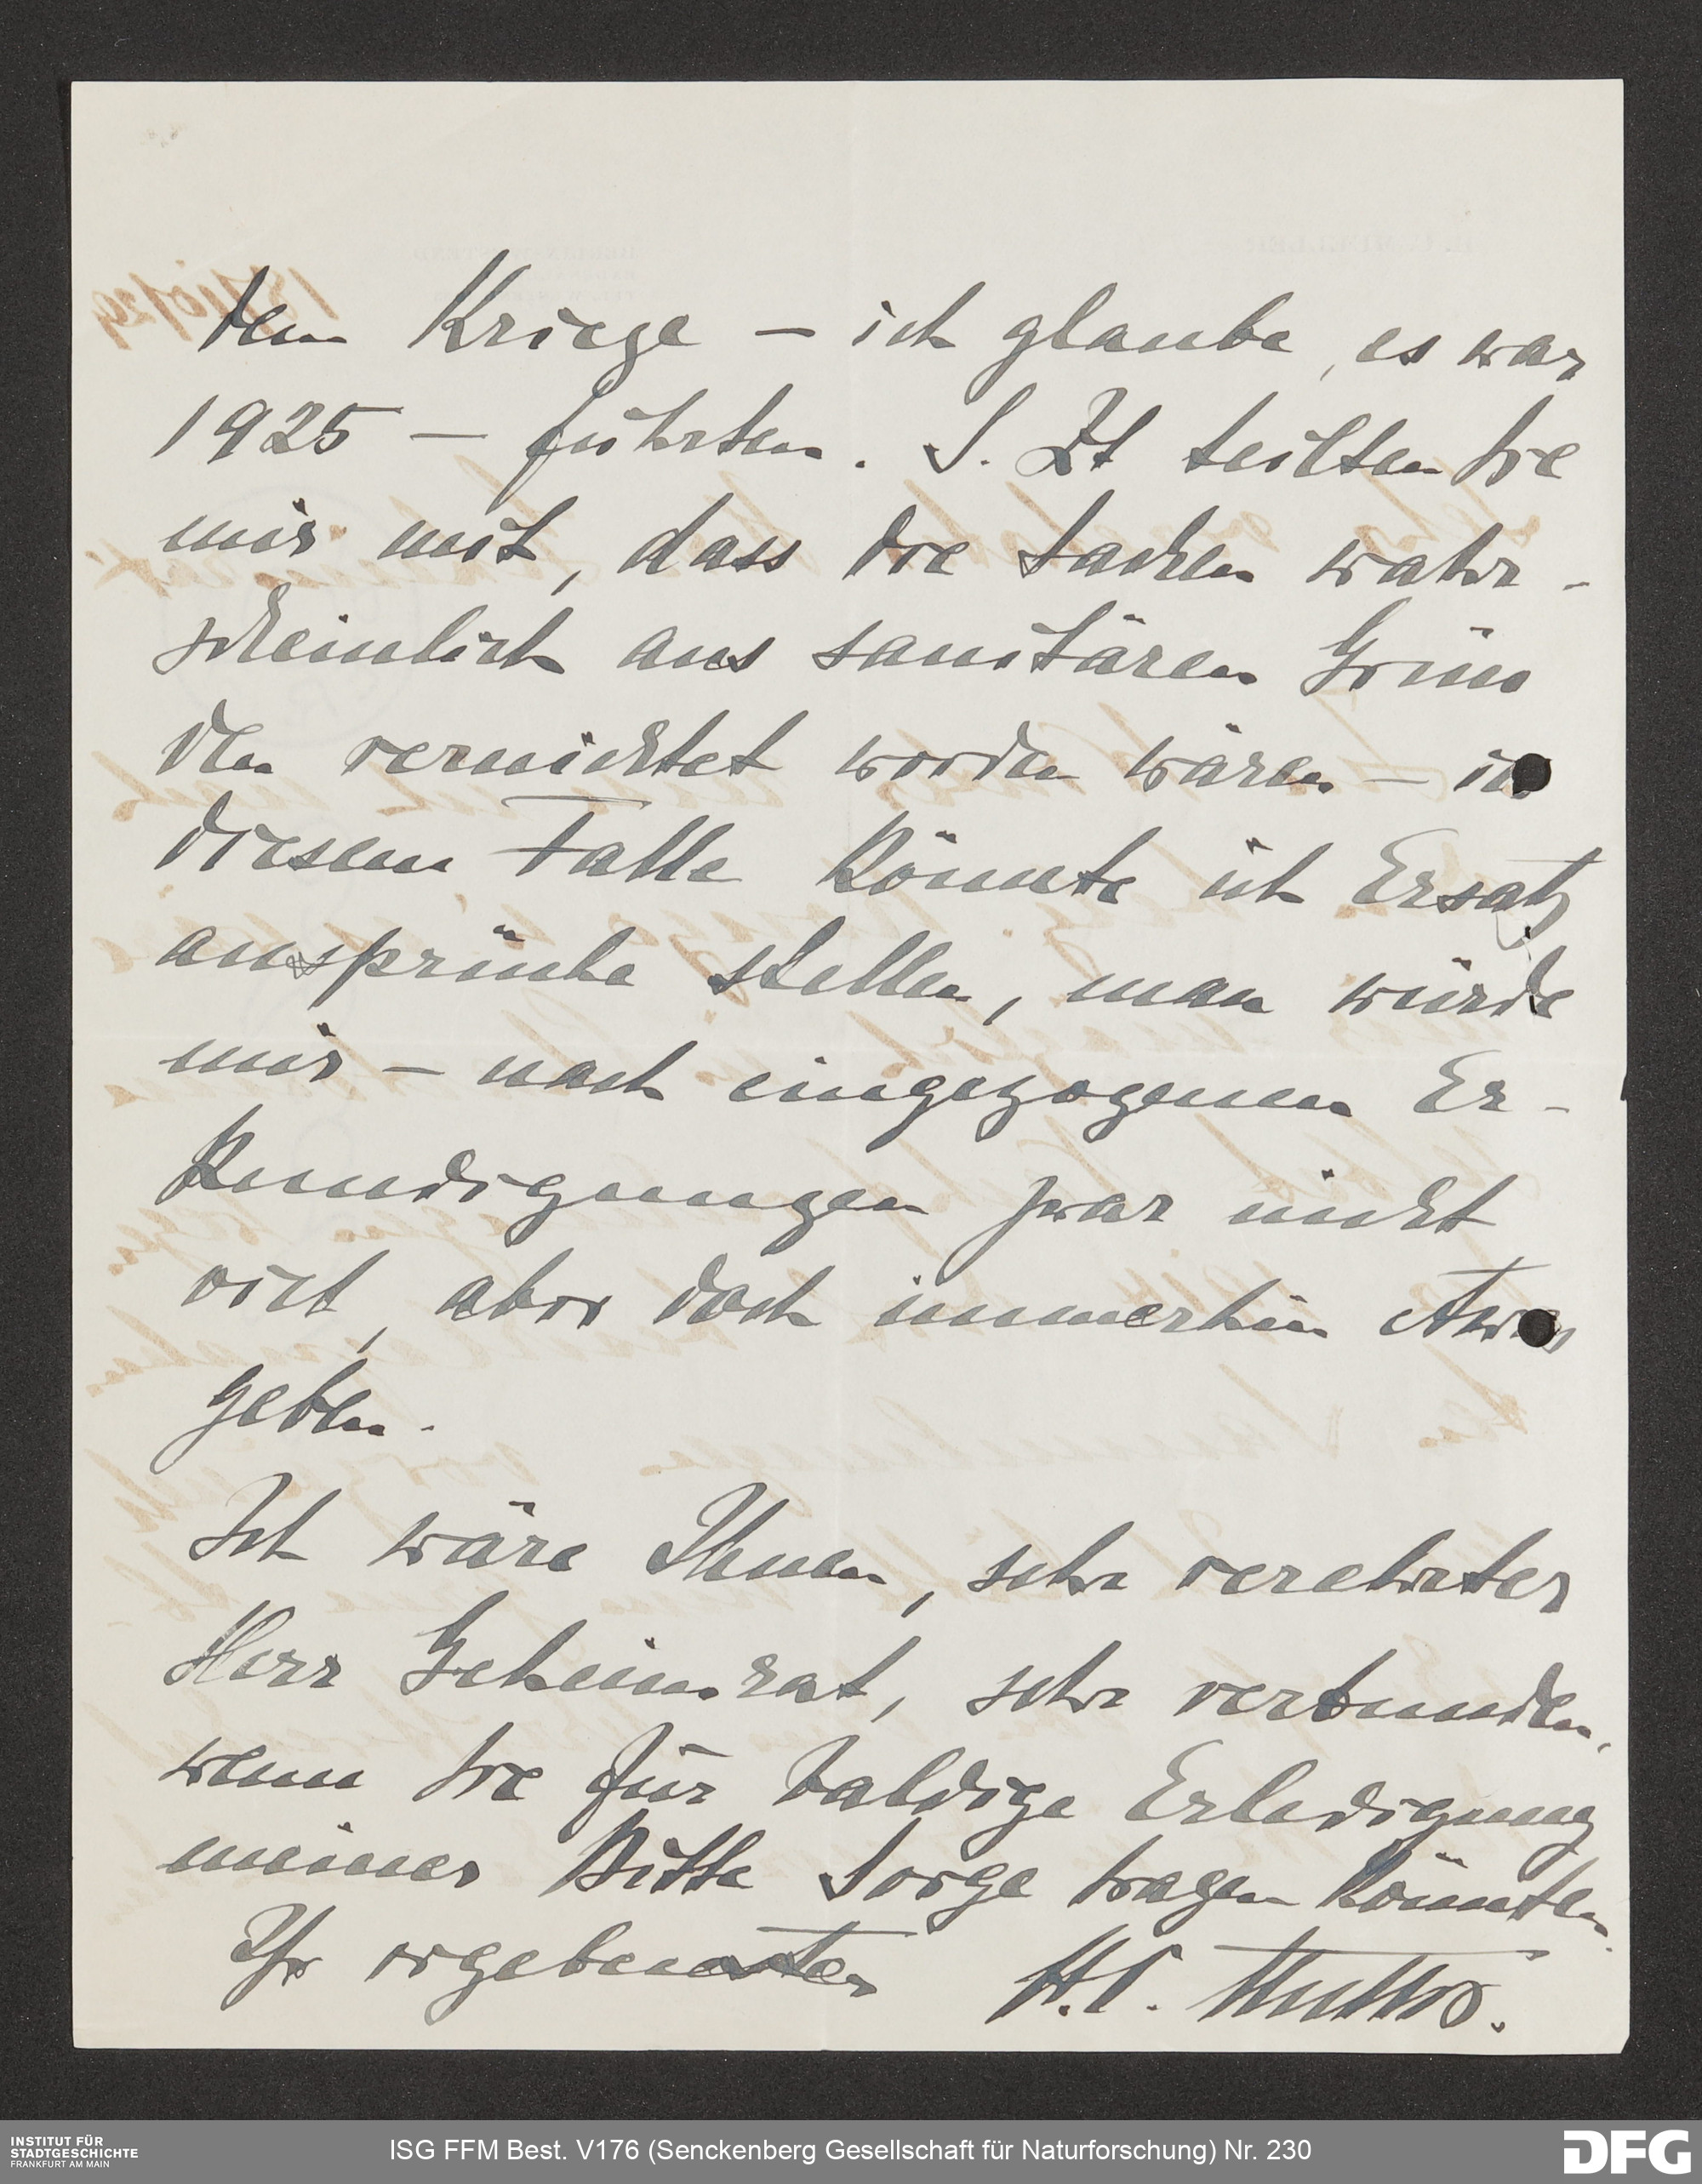 dem Kriege – ich glaube, es war
1925 – führten. S. Zt teilten Sie
mir mit, dass die Sachen wahr-
scheinlich aus sanitären Grün
den vernichtet worden wären – in
diesem Falle könnte ich Ersatz
ansprüche stellen, man würde
mir – nach eingezogenen Er-
kundigungen zwar nicht
viel, aber doch immerhin etwas
geben.
Ich wäre Ihnen, sehr verehrter
Herr Geheimrat, sehr verbunden,
wenn Sie für baldige Erledigung
meiner Bitte Sorge tragen könnten.
Ihr ergebenster H.C. Müller.
INSTITUT FÜR
STADTGESCHICHTE
FRANKFURT AM MAIN
ISG FFM Best. V176 (Senckenberg Gesellschaft für Naturforschung) Nr. 230
DFG